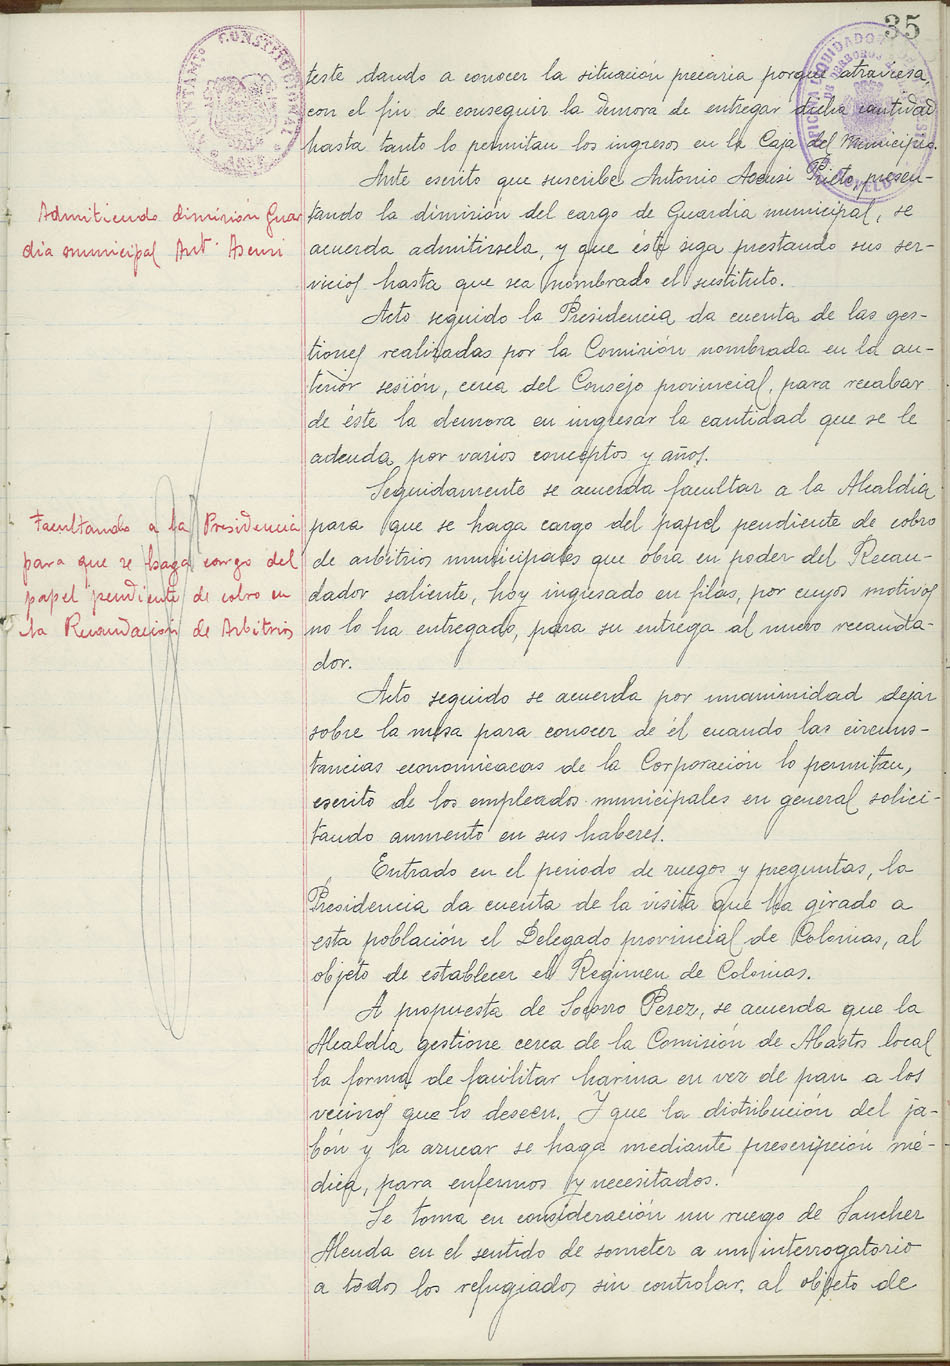 35
AYUNTAMTO CONSTITUCIONAL
ASPE
teste dando a conocer la situación precaria porque atraviesa,
con el fin de conseguir la demora de entregar dicha cantidad
hasta tanto lo permitan los ingresos en la Caja del Municipio.
Ante escrito que suscribe Antonio Asensi Prieto, presen-
Admitiendo dimisión Guar
dia municipal Antº Asensi
tando la dimisión del cargo de Guardia municipal, se
acuerda admitirsela, y que éste siga prestando sus ser-
vicios hasta que sea nombrado el sustituto.
Acto seguido la Presidencia da cuenta de las ges-
tiones realizadas por la Comisión nombrada en la an-
terior sesión, cerca del Consejo provincial, para recabar
de éste la demora en ingresar la cantidad que se le
adeuda por varios conceptos y años.
Seguidamente se acuerda facultar a la Alcaldia
Facultando a la Presidencia
para que se haga cargo del
papel pendiente de cobro en
la Recaudación de Arbitrios
para que se haga cargo del papel pendiente de cobro
de arbitrios municipales que obra en poder del Recau-
dador saliente, hoy ingresado en filas, por cuyos motivos
no lo ha entregado, para su entrega al nuevo recauda-
dor.
Acto seguido se acuerda por unanimidad dejar
sobre la mesa para conocer de él cuando las circuns-
tancias economicacas de la Corporación lo permitan,
escrito de los empleados municipales en general solici-
tando aumento en sus haberes.
Entrado en el periodo de ruegos y preguntas, la
Presidencia da cuenta de la visita que ha girado a
esta población el Delegado provincial de Colonias, al
objeto de establecer el Regimen de Colonias.
A propuesta de Socorro Perez, se acuerda que la
Alcaldia gestione cerca de la Comisión de Abastos local
la forma de facilitar harina en vez de pan a los
vecinos que lo deseen. Y que la distribución del ja-
bón y la azucar se haga mediante prescripción mé-
dica, para enfermos y necesitados.
Se toma en consideración un ruego de Sanchez
Alenda en el sentido de someter a un interrogatorio
a todos los refugiados sin controlar, al objeto de